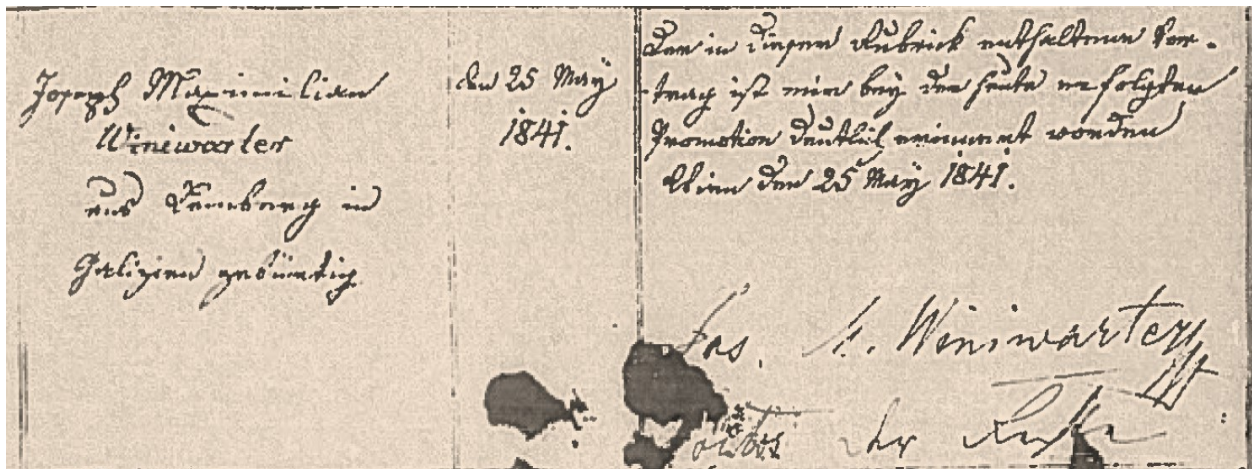 Joseph Maximilian
Winiwarter
aus Lemberg in
Galizien gebürtig
den 25 May
1841.
Der in dieser Rubrick enthaltene Vor-
trag ist mir bey der heute erfolgten
Promotion deutlich erinnert worden
Wien den 25 May 1841.
Jos. M. Winiwarter
der Rechte